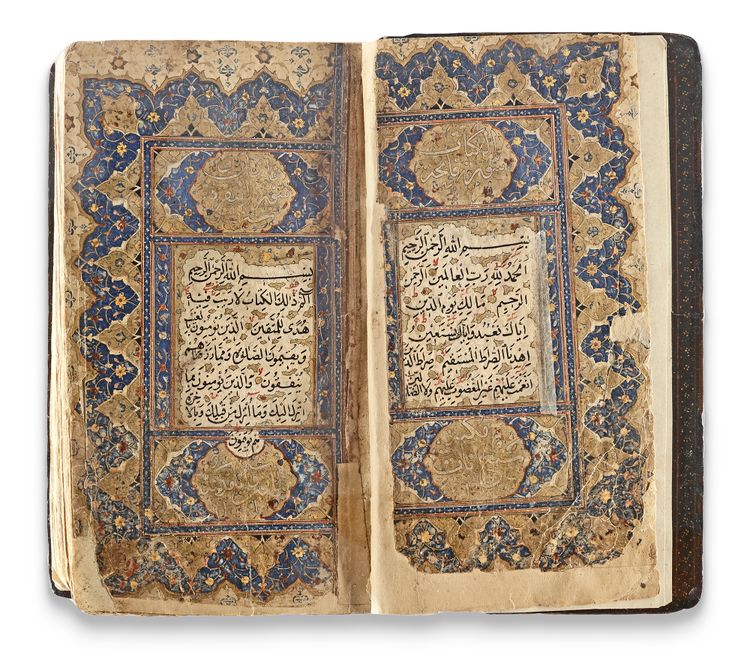 بسم الله الرحمن الرحيم
الحمد لله رب العالمين الرحمن
الرحيم مالك يوم الدين
اياك نعبد واياك نستعين
اهدنا الصراط المستقيم صراط الذين
انعمت عليهم غير المغضوب عليهم ولا الضالين
بسم الله الرحمن الرحيم
الم ذلك الكتاب لا ريب فيه
هدى للمتقين الذين يؤمنون بالغيب
ويقيمون الصلوة ومما رزقناهم
ينفقون والذين يؤمنون بما
انزل اليك وما انزل من قبلك وبالاخرة
هم يوقنون